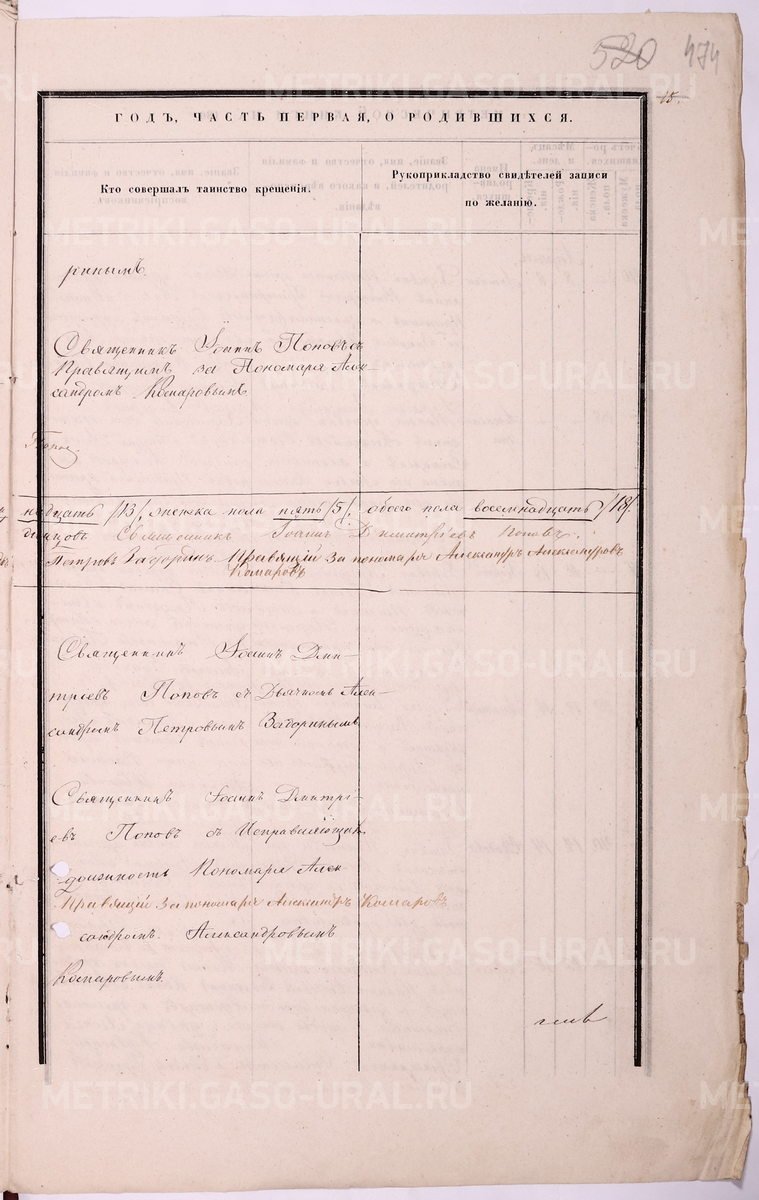 520 474
15.
ГОДЪ, ЧАСТЬ ПЕРВАЯ, О РОДИВШИХСЯ.
Кто совершалъ таинство крещенія.
Рукоприкладство свидѣтелей записи по желанію.
рнымъ.
Священникъ Іоаннъ Поповъ съ
Правящимъ за Пономаря Алек-
сандромъ Комаровымъ
надцать /13/ женска пола пять /5/. обоего пола восемнадцать /18/
Священникъ Іоаннъ Димитріевъ Поповъ.
Петровъ Задоринъ Правящій За пономаря Александръ Александровъ
Комаровъ
Священникъ Іоаннъ Дми-
тріевъ Поповъ съ Дьячкомъ Алек-
сандромъ Петровымъ Задоринымъ
Священникъ Іоаннъ Дмитрі-
евъ Поповъ съ Исправляющимъ
должность Пономаря Алек
Правящій За пономаря Александръ Комаровъ
сандромъ Александровымъ
Комаровымъ.
METRIKI.GASO-URAL.RU